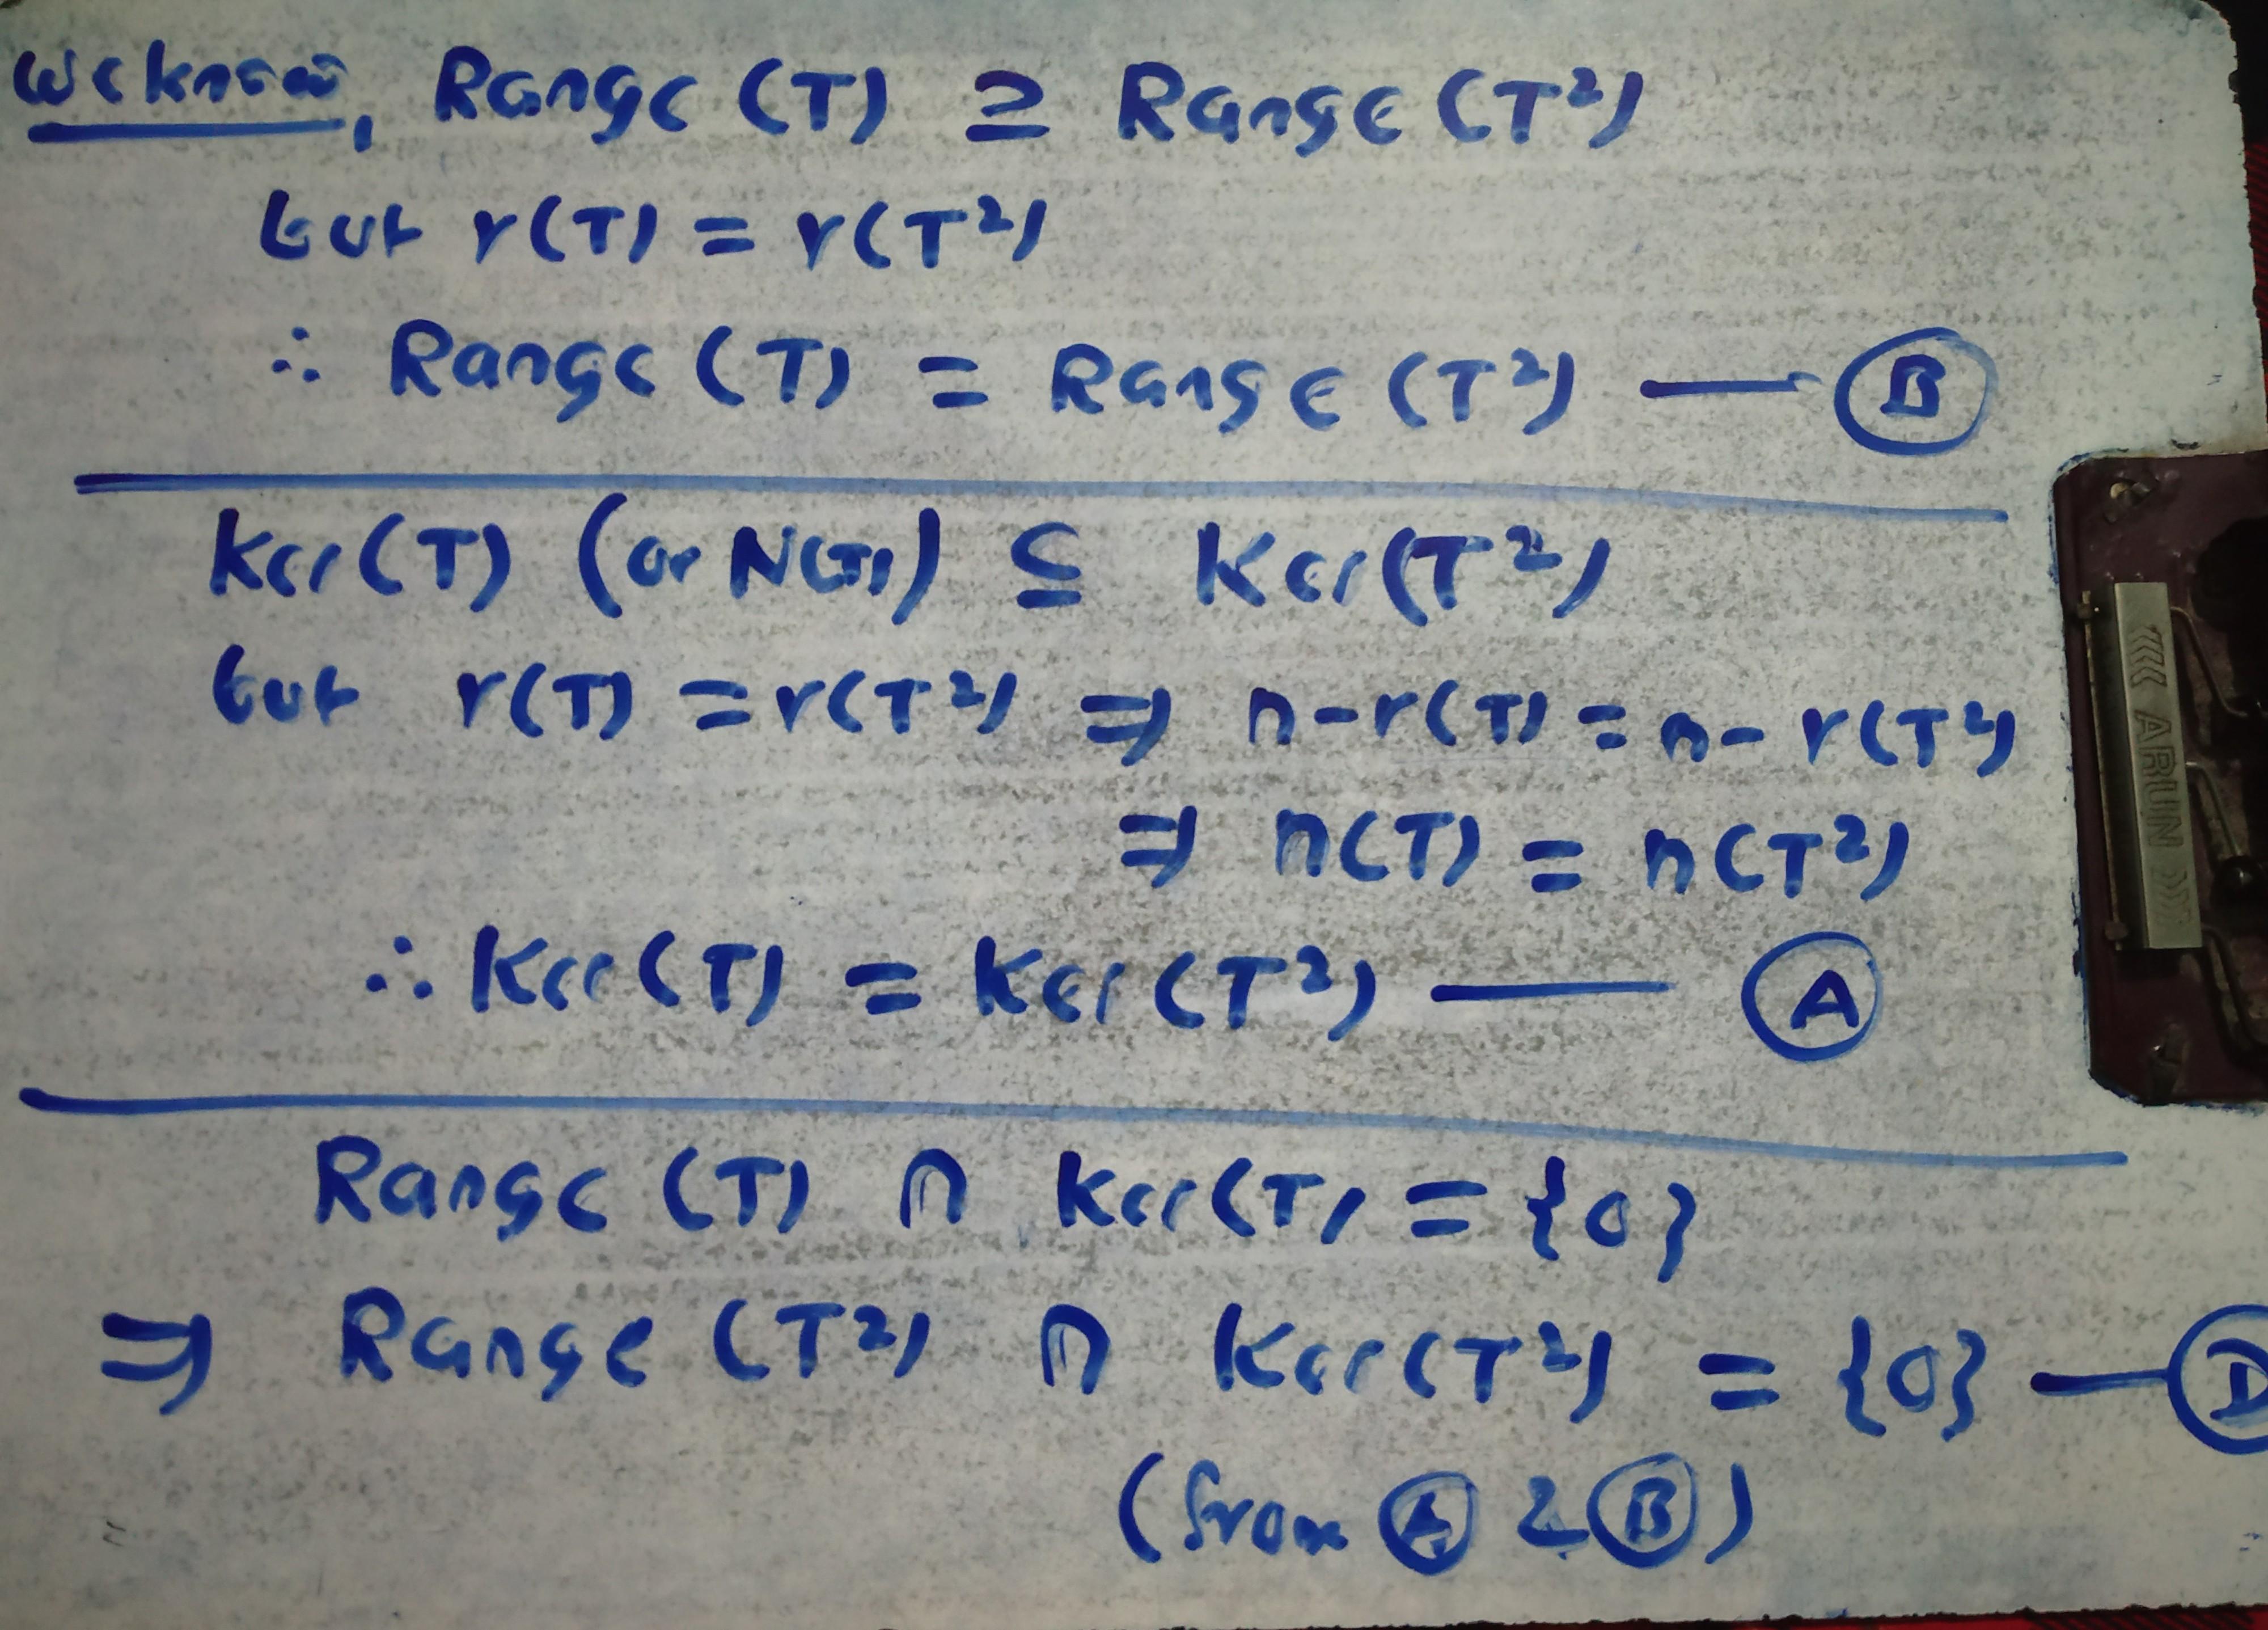 We know, Range (T) ⊇ Range (T²)
but r(T) = r(T²)
∴ Range (T) = Range (T²) — Ⓑ
Ker(T) (or N(T)) ⊆ Ker(T²)
but r(T) = r(T²) ⇒ n-r(T) = n-r(T²)
⇒ n(T) = n(T²)
∴ Ker(T) = Ker(T²) — Ⓐ
Range (T) ∩ Ker(T) = {0}
⇒ Range (T²) ∩ Ker(T²) = {0} — Ⓓ
(from Ⓐ & Ⓑ)
ARUN